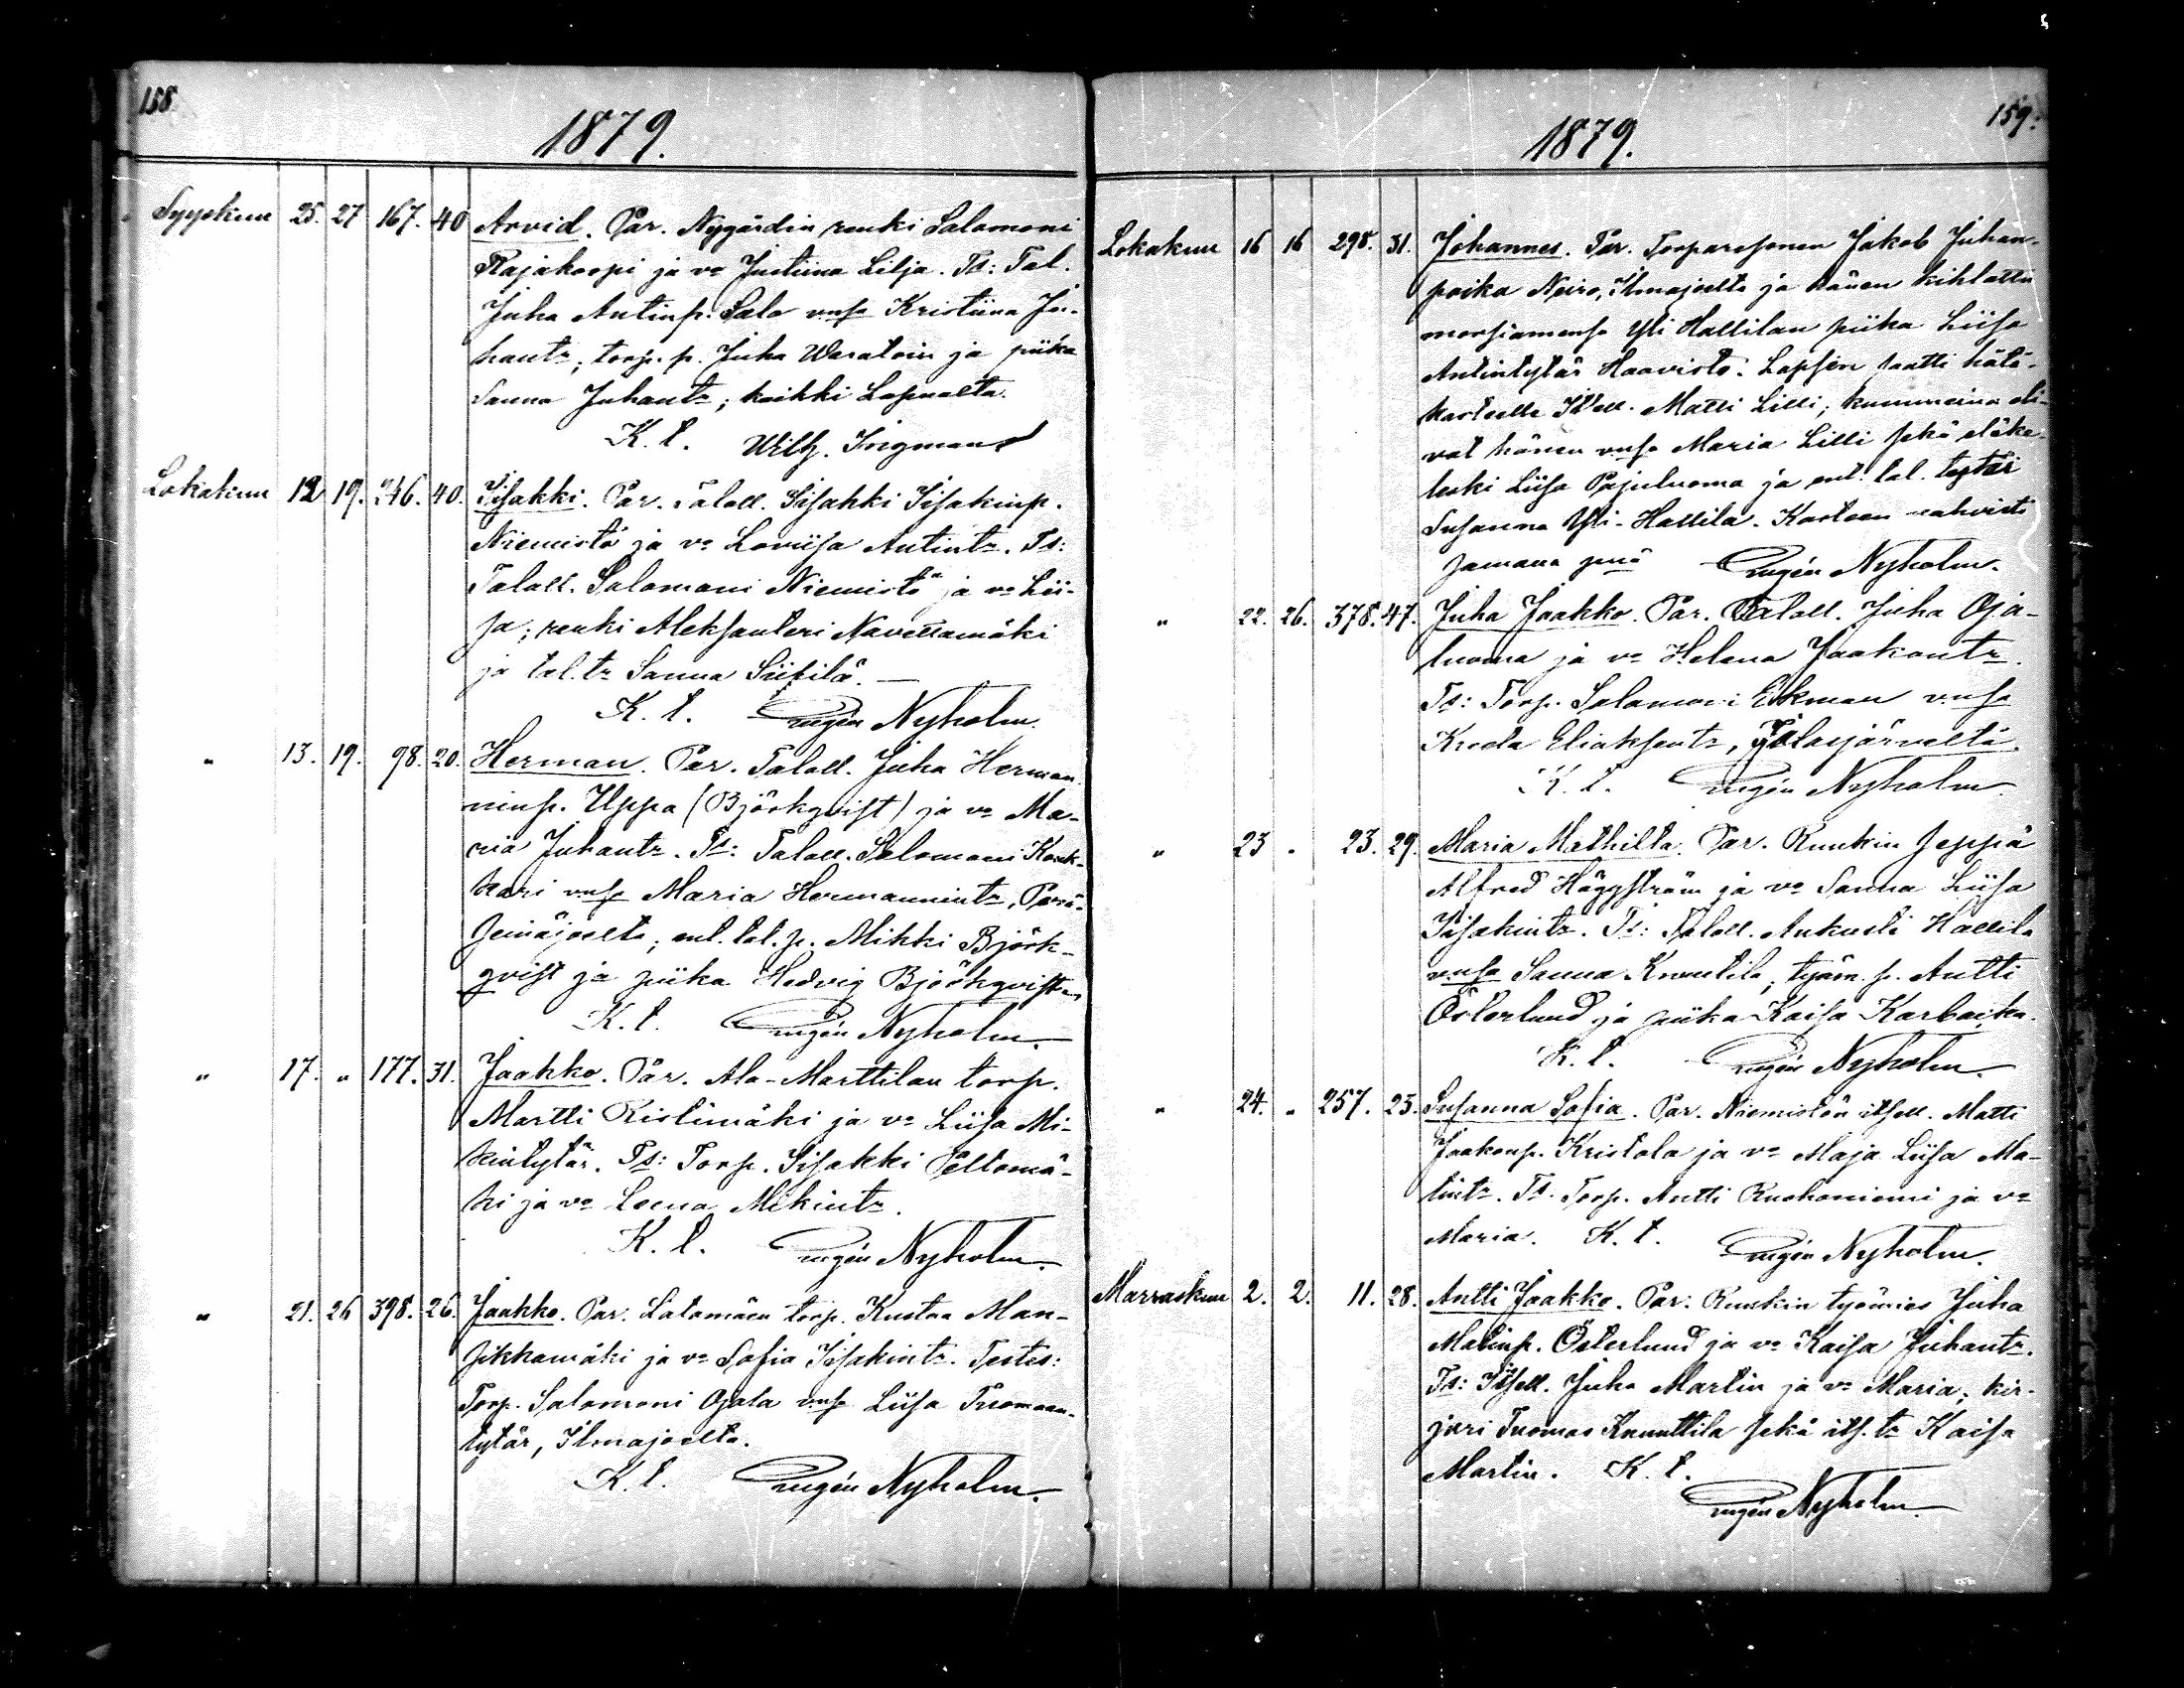 158.
1879.
Syyskuu 25. 27 167. 40 Arvid. Par. Nygårdin renki Salomoni
Rajakorpi ja vo Justiina Lilja. Ts: Tal.
Juha Antinp. Salo vmsa Kristiina Ju-
hantr, torp. p. Juha Waratoin ja piika
Sanna Juhantr; kaikki Lapualta.
K. t. Wilh. Ingman
Lokakuu 12 19. 246. 40. Iisakki. Par. Taloll. Iisakki Iisakinp.
Niemistö ja vo Loviisa Antintr. Ts:
Taloll. Salomoni Niemistö ja vo Lii-
sa; renki Aleksanteri Navettamäki
ja tal. tr Sanna Siitilä. —
K. t. Eugén Nyholm.
" 13. 19. 98. 20. Herman. Par. Taloll. Juha Herman
ninp. Uppa (Björkqvist) ja vo Ma-
ria Juhantr. Ts: Taloll. Salomoni Kouk-
kari vmsa Maria Hermannintr, Perä-
seinäjoelta; ent. tal. p. Mikki Björk-
qvist ja piika Hedvig Björkqvist
K. t. Eugén Nyholm.
" 17. " 177. 31. Jaakko. Par. Ala-Marttilan torp.
Martti Ristimäki ja vo Liisa Mi-
kintytär. Ts: Torp. Iisakki Peltomä-
ki ja vo Leena Mikintr.
K. t. Eugén Nyholm.
" 21. 26 398. 26. Jaakko. Par. Latomäen torp. Kustaa Man-
sikkamäki ja vo Sofia Iisakintr. Testes:
Torp. Salomoni Ojala vmsa Liisa Tuomaan-
tytär, Ilmajoelta.
K. t. Eugén Nyholm.
159.
1879.
Lokakuu 16 16 298. 31. Johannes. Par. Torparinpoika Jakob Juhan-
poika Neiro, Ilmajoelta ja hänen kihlattu
morsiamensa Yli Hallilan piika Liisa
Antintytär Haavisto. Lapsen saatti hätä-
kasteelle Itsell. Matti Lilli; kummeina oli-
vat hänen vmsa Maria Lilli sekä eläke-
leski Liisa Pajuluoma ja ent. tal. tytär
Susanna Yli-Hallila. Kasteen vahvisti
samana pnä Eugén Nyholm.
" 22. 26. 378. 47. Juha Jaakko. Par. Taloll. Juha Oja-
luoma ja vo Helena Jaakontr.
Ts: Torp. Salomoni Ekman vmsa
Kreeta Eliaksentr, Jalasjärveltä.
K. t. Eugén Nyholm
" 23 " 23. 29. Maria Mathilta. Par. Ruukin seppä
Alfred Häggström ja vo Sanna Liisa
Iisakintr. Ts: Taloll. Aukusti Hallila
vmsa Sanna Knuutila; työm. p. Antti
Österlund ja piika Kaisa Karbacka.
K. t. Eugén Nyholm.
" 24. " 257. 23. Susanna Sofia. Par. Niemistön itsell. Matti
Jaakonp. Kristola ja vo Maja Liisa Ma-
tintr. Ts: Torp. Antti Ruohoniemi ja vo
Maria. K. t. Eugén Nyholm.
Marraskuu 2. 2. 11. 28. Antti Jaakko. Par: Ruukin työmies Juha
Matinp. Österlund ja vo Kaisa Juhantr.
Ts: Itsell. Juha Martin ja vo Maria; kir-
juri Tuomas Knuuttila sekä its. tr Kaisa
Martin. K. t.
Eugén Nyholm.